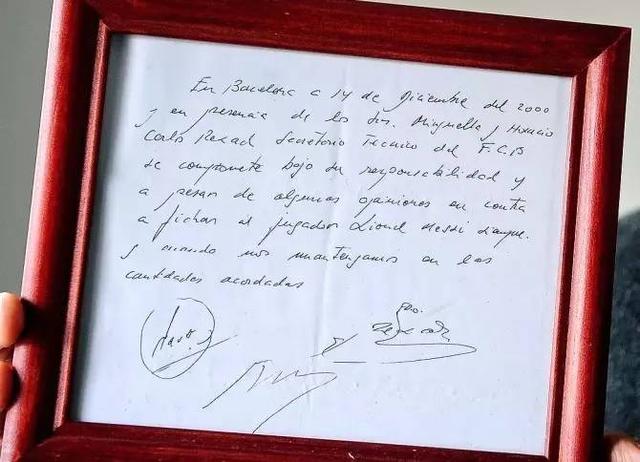 En Barcelona a 14 de Diciembre del 2000
y en presencia de los srs. Minguella y Horacio
Carlo Rexad Secretario Técnico del F.C.B
se compromete bajo su responsabilidad y
a pesar de algunas opiniones en contra
a fichar al jugador Lionel Messi siempre
y cuando nos mantengamos en las
cantidades acordadas